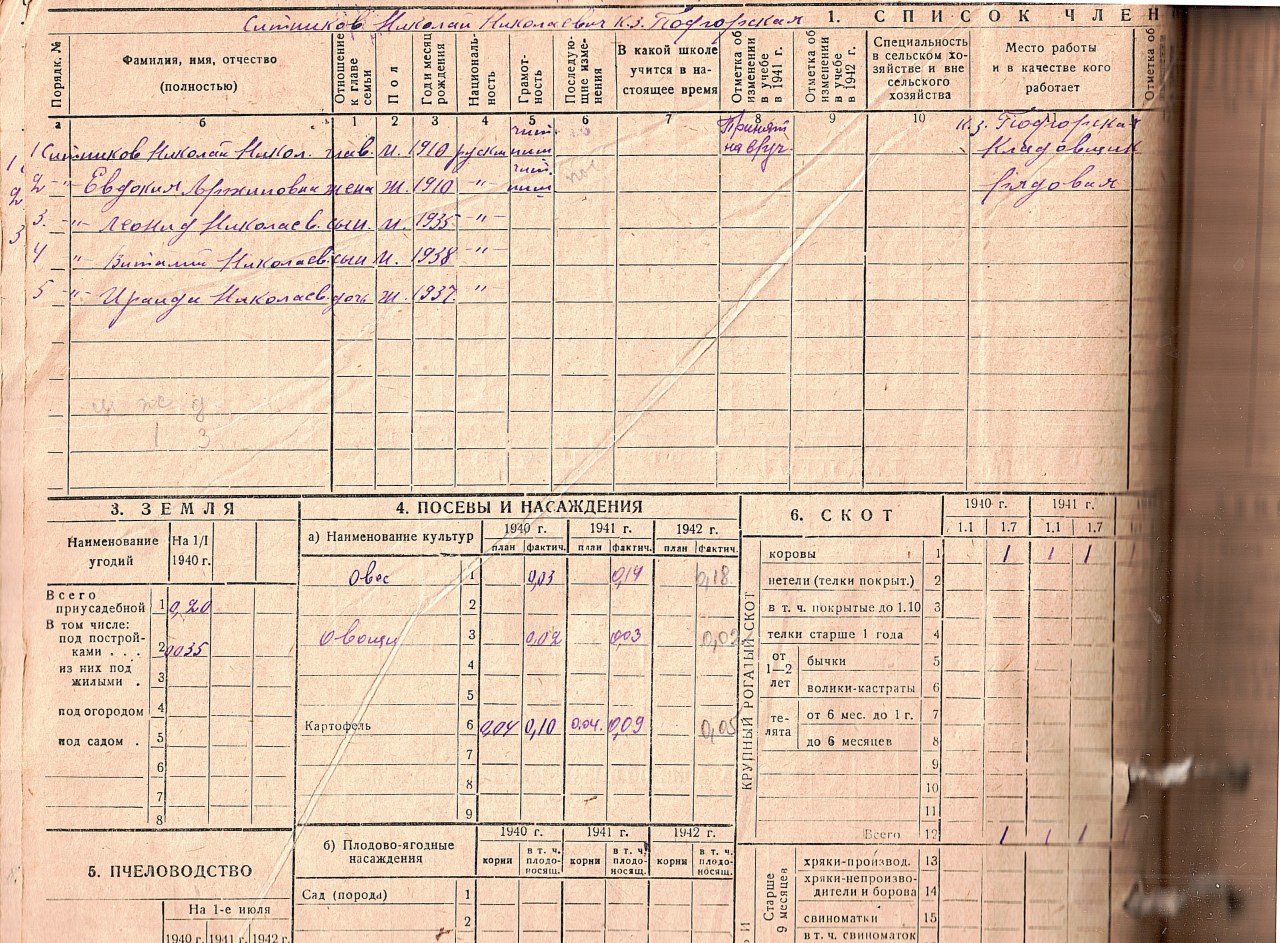 Ситников Николай Николаевич к.з. Подгорская
1. СПИСОК ЧЛЕН
Порядк. № Фамилия, имя, отчество (полностью) Отношение к главе семьи Пол Год и месяц рождения Националь-ность Грамот-ность Последую-щие изме-нения В какой школе учится в на-стоящее время Отметка об изменении в учебе в 1941 г. Отметка об изменении в учебе в 1942 г. Специальность в сельском хо-зяйстве и вне сельского хозяйства Место работы и в качестве кого работает Отметка об
а б 1 2 3 4 5 6 7 8 9 10 11
1 Ситников Николай Никол. глав. м. 1910 русск Принят к.з. Подгорская Кладовщик
2 -"- Евдокия жена ж. 1910 -"- Рядовая
3. -"- Леонид Николаев. сын. м. 1935 -"-
4 " Виталий Николаев. сын м. 1938 -"-
5 -"- Ираида Николаев. дочь ж. 1937 "
3. ЗЕМЛЯ
Наименование угодий На 1/I 1940 г.
Всего приусадебной 1 0,20
В том числе:
под построй-ками . . . 2 0035
из них под жилыми . 3
под огородом 4
под садом . 5
6
7
8
5. ПЧЕЛОВОДСТВО
На 1-е июля
1940 г. 1941 г. 1942 г.
4. ПОСЕВЫ И НАСАЖДЕНИЯ
а) Наименование культур 1940 г. 1941 г. 1942 г.
план фактич. план фактич. план фактич.
Овес 1 0,03 0,14 0,18
2
Овощи 3 0,02 0,03 0,02
4
5
Картофель 6 0,04 0,10 0,04. 0,09 0,05
7
8
9
б) Плодово-ягодные насаждения 1940 г. 1941 г. 1942 г.
корни в т. ч. плодо-носящ. корни в т. ч. плодо-носящ. корни в т. ч. плодо-носящ.
Сад (порода) 1
2
6. СКОТ 1940 г. 1941 г.
1.1 1.7 1.1 1.7
КРУПНЫЙ РОГАТЫЙ СКОТ
коровы 1 1 1 1
нетели (телки покрыт.) 2
в т. ч. покрытые до 1.10 3
телки старше 1 года 4
от 1—2 лет бычки 5
волики-кастраты 6
те-лята от 6 мес. до 1 г. 7
до 6 месяцев 8
9
10
11
Всего 12 1 1 1
Старше 9 месяцев
хряки-производ. 13
хряки-непроизво-дители и борова 14
свиноматки 15
в т. ч. свиноматок